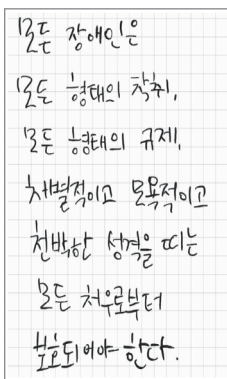 모든 장애인은
모든 형태의 착취,
모든 형태의 규제,
차별적이고 모욕적이고
천박한 성격을 띠는
모든 처우로부터
보호되어야 한다.